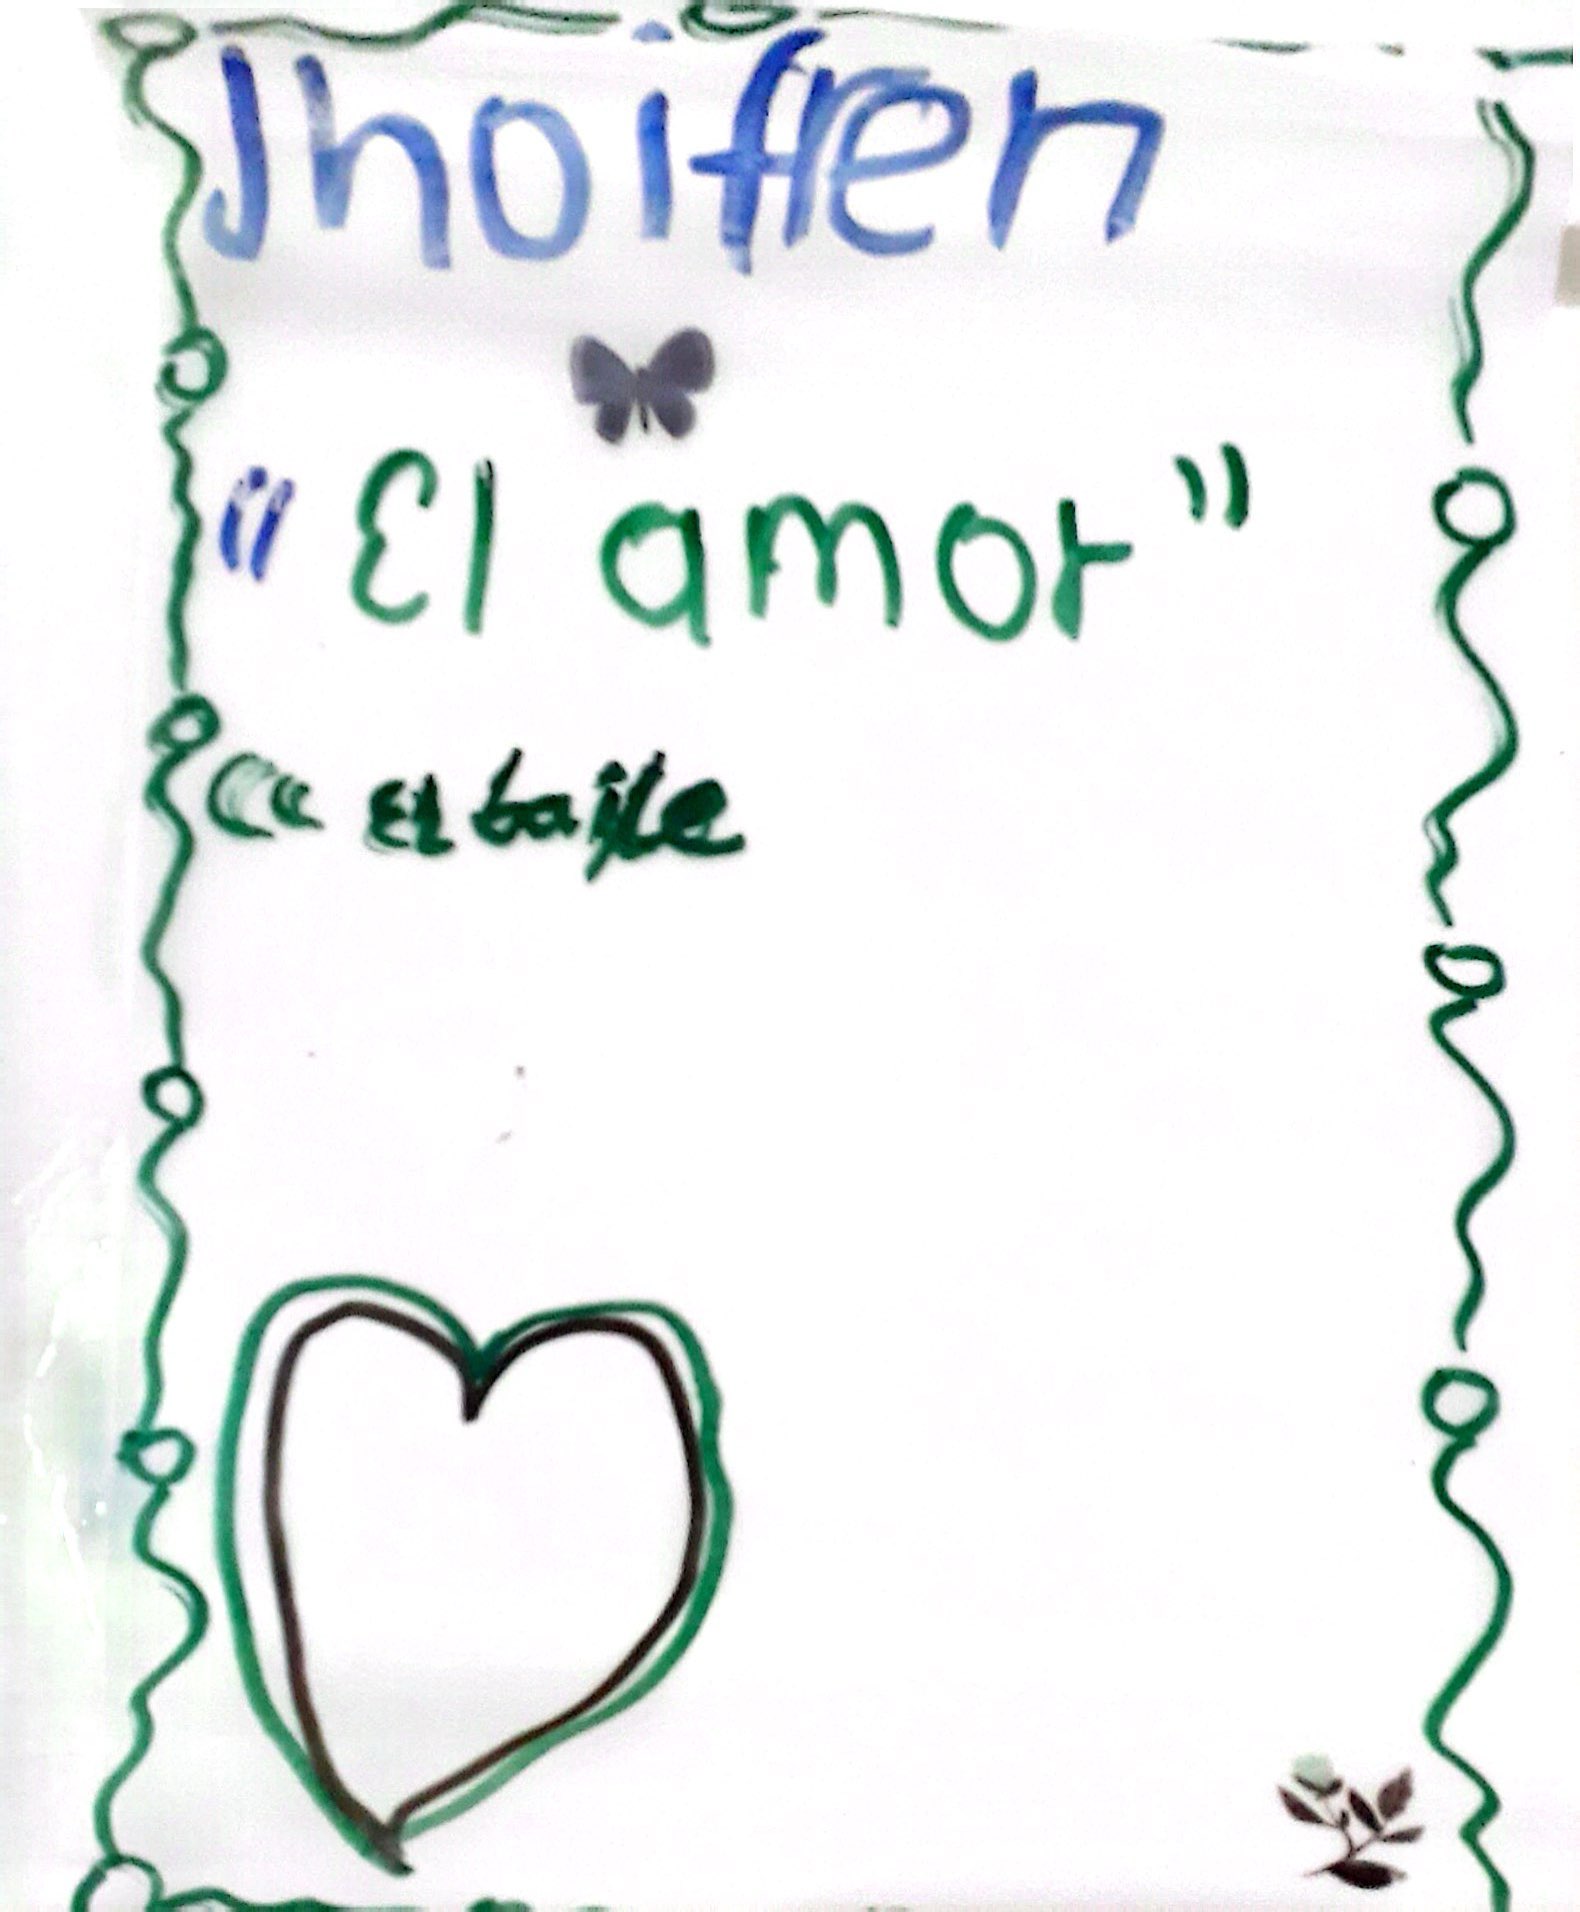 Jhoifren
"El amor"
"El baile